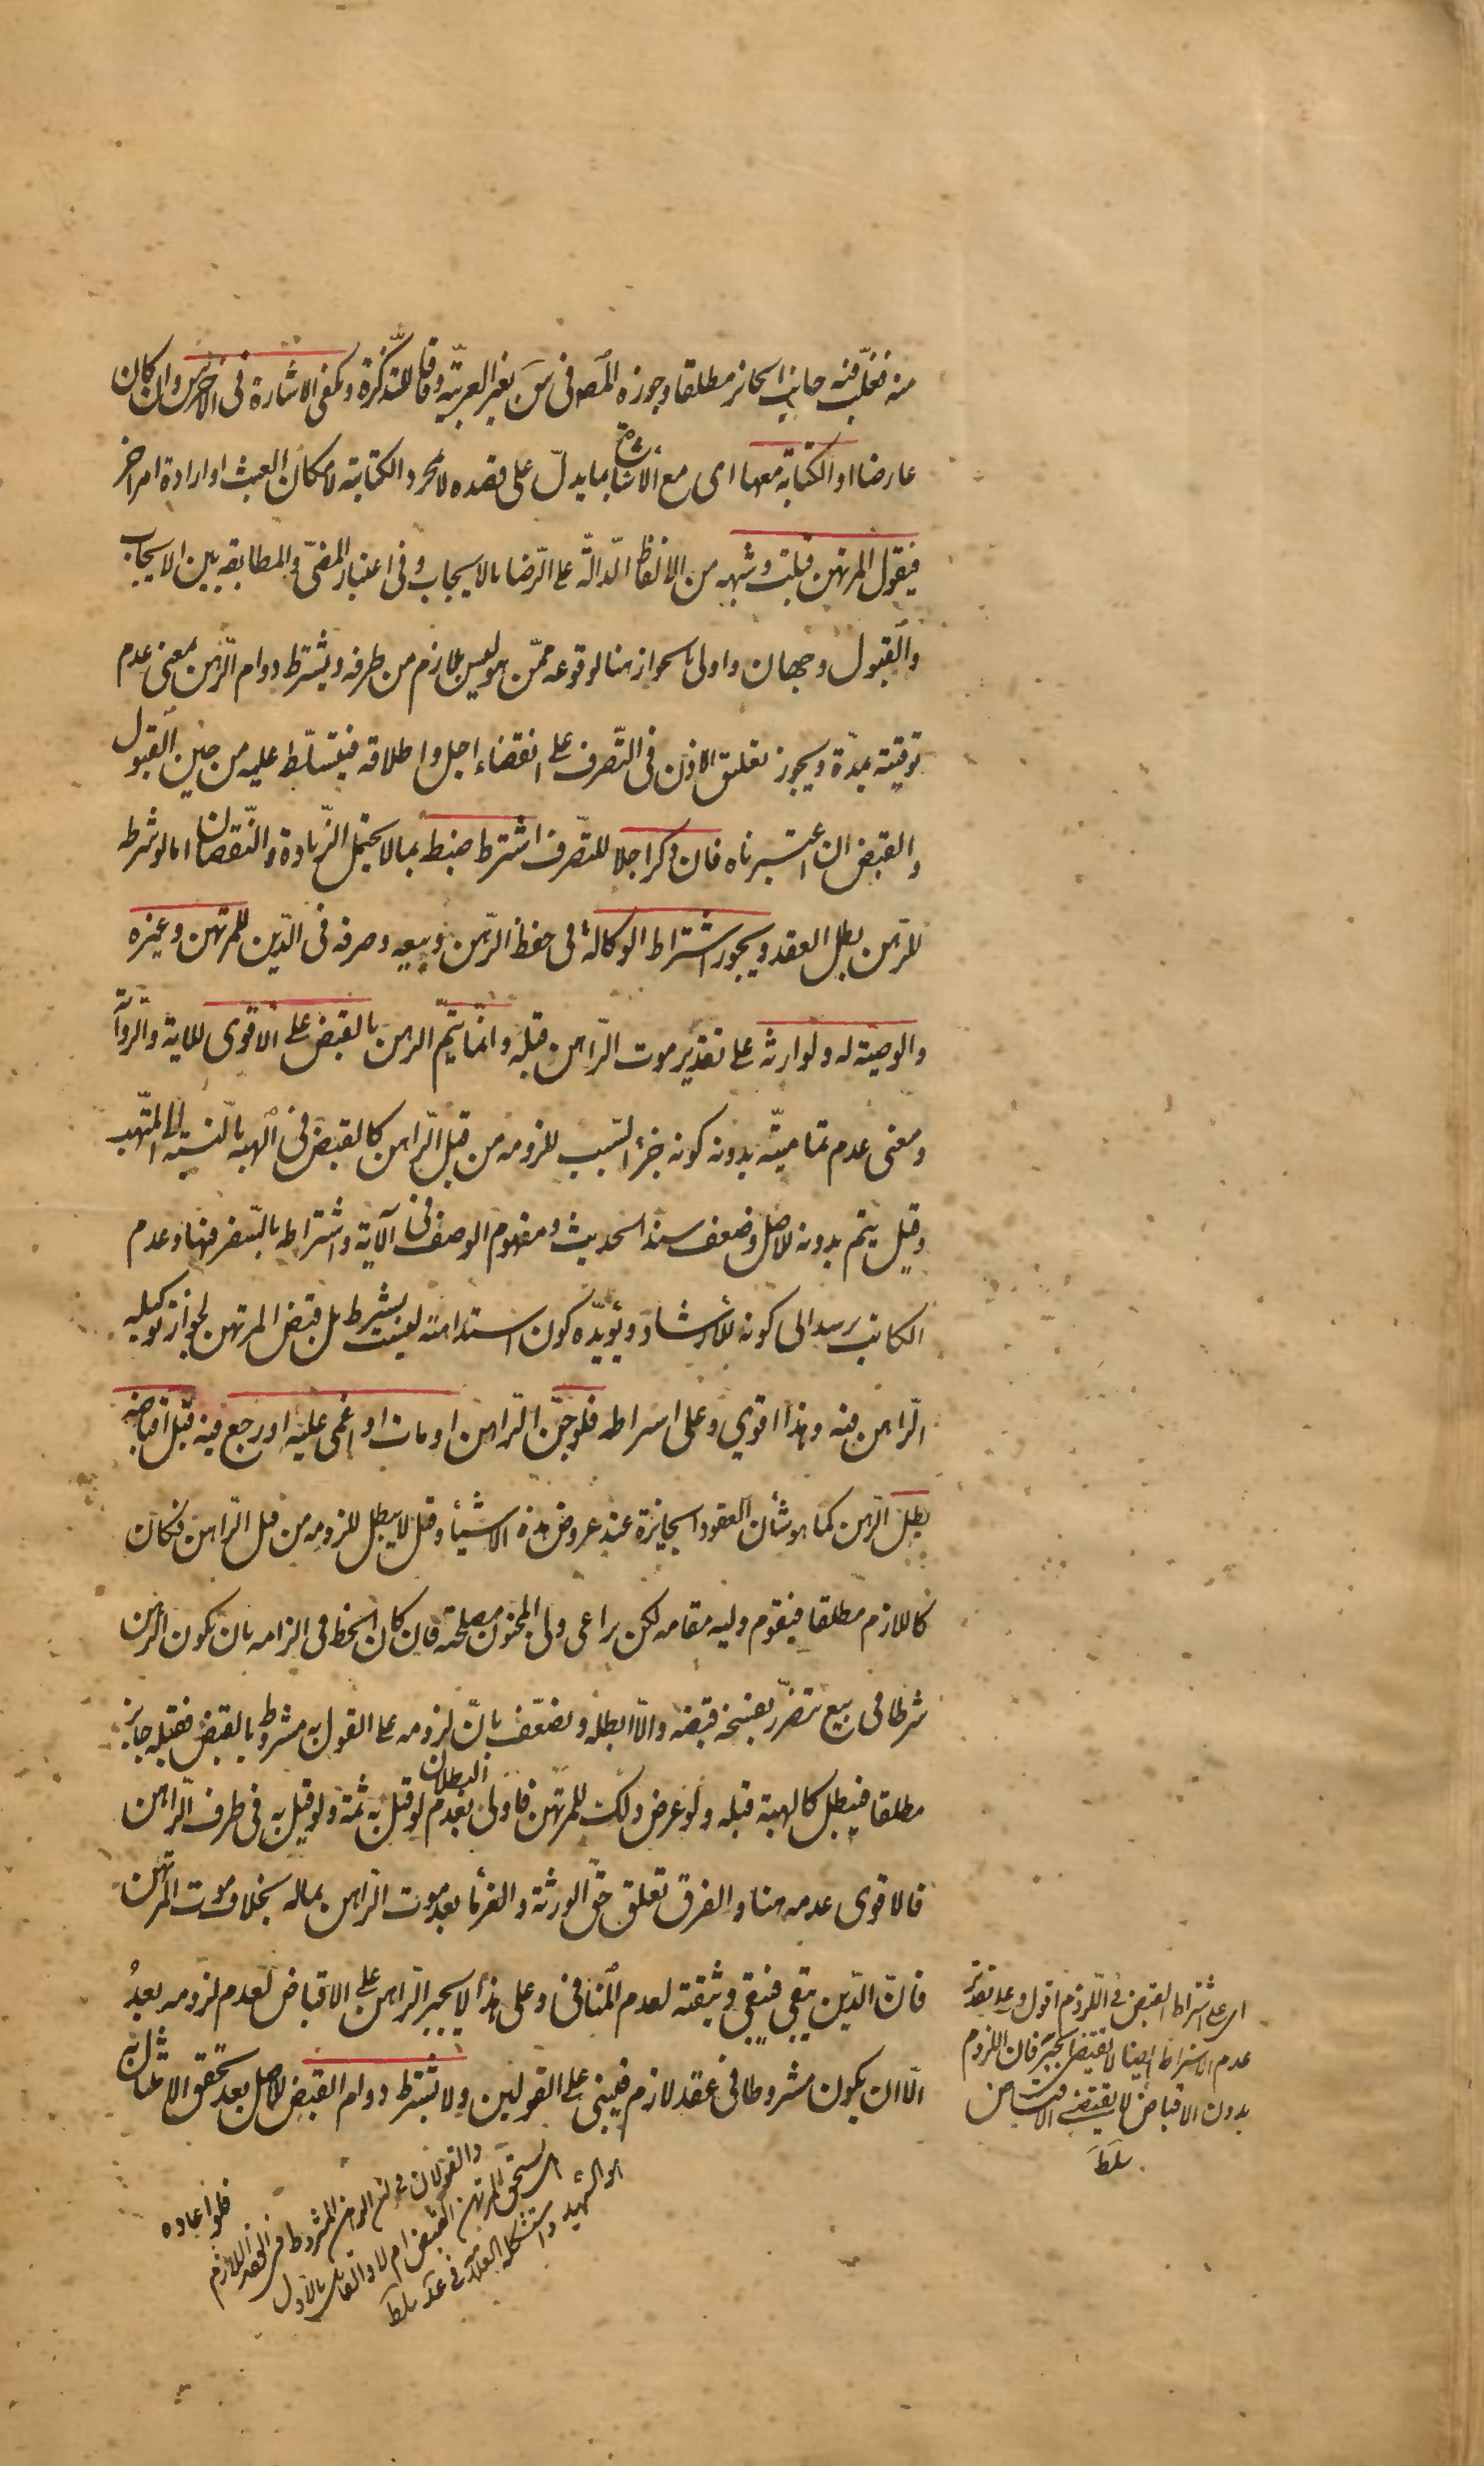 منه فغلّب فيه جانب الجائز مطلقا وجوزه المص فى س بغير العربيّة وفاقا للتذكرة وتكفى الاشارة فى الاخرس وان كان
عارضا او الكتابة معها اى مع الاشارة بما يدلّ على قصده لا مجرد الكتابة لامكان العبث او ارادة امر اخر
فيقول المرتهن قبلت وشبهه من الالفاظ الدّالّة على الرّضا بالايجاب وفى اعتبار المضىّ والمطابقه بين الايجاب
والقبول وجهان واولى بالجواز هنا لوقوعه ممّن هو ليس بلازم من طرفه ويشترط دوام الرّهن بمعنى عدم
توقيته بمدّة ويجوز تعليق الاذن فى التّصرف على انقضاء اجل واطلاقه فيتسلّط عليه من حين القبول
والقبض ان اعتبرناه فان ذكر اجلا للتّصرف اشترط ضبط بما لا يحتمل الزّيادة والنّقصان اما لو شرطه
للرّهن بطل العقد ويجوز اشتراط الوكالة فى حفظ الرّهن وبيعه وصرفه فى الدّين للمرتهن وغيره
والوصيّة له ولوارثه على تقدير موت الرّاهن قبله وانّما يتمّ الرهن بالقبض على الاقوى للاية والرّواية
ومعنى عدم تماميّته بدونه كونه جزء السّبب للزومه من قبل الرّاهن كالقبض فى الهبه بالنّسبة الى المتّهب
وقيل يتم بدونه للاصل وضعف سند الحديث ومفهوم الوصف فى الآية واشتراطه بالسّفر فيها وعدم
الكاتب يرشد الى كونه للارشاد ويؤيّده كون استدامته ليست بشرط بل قبض المرتهن لجواز توكيله
الرّاهن فيه وهذا اقوي وعلى اشتراطه فلو جنّ الرّاهن او مات او اغمى عليه او رجع فيه قبل اقباضه
بطل الرّهن كما هو شأن العقود الجايزة عند عروض هذه الاشيأ وقيل لا يبطل للزومه من قبل الرّاهن فكان
كاللازم مطلقا فيقوم وليه مقامه لكن يراعى ولى المجنون مصلحته فان كان الحظ فى الزامه بان يكون الرّهن
شرطا فى بيع يتضرّر بفسخه قبضه والّا ابطله ويضعّف بانّ لزومه على القول به مشروط بالقبض فقبله جايز
مطلقا فيبطل كالهبة قبله ولو عرض ذلك للمرتهن فاولى بعدم البطلان لو قيل به ثمة ولو قيل به فى طرف الرّاهن
فالاقوى عدمه هنا والفرق تعلق حقّ الورثة والغرمأ بعد موت الرّاهن بماله بخلاف موت المرتهن
فانّ الدّين يبقى فتبقى وثيقته لعدم المنافى وعلى هذا لا يجبر الرّاهن على الاقباض لعدم لزومه بعدُ
الّا ان يكون مشروطا فى عقد لازم فيبنى على القولين ولا يشترط دوام القبض للاصل بعد تحقق الامتثال به
فلو اعاده
اى على اشتراط القبض فى اللزوم اقول وعلى تقدير
عدم الاشتراط ايضا لا يقتضى الجبر فان اللزوم
بدون الاقباض لا يقتضى الاقباض
سلط
والقولان فى ان الرهن المشروط فى العقد اللازم
يستحق المرتهن القبض ام لا والقائل بالاول
الشهيد واستشكله العلامة فى عد سلط